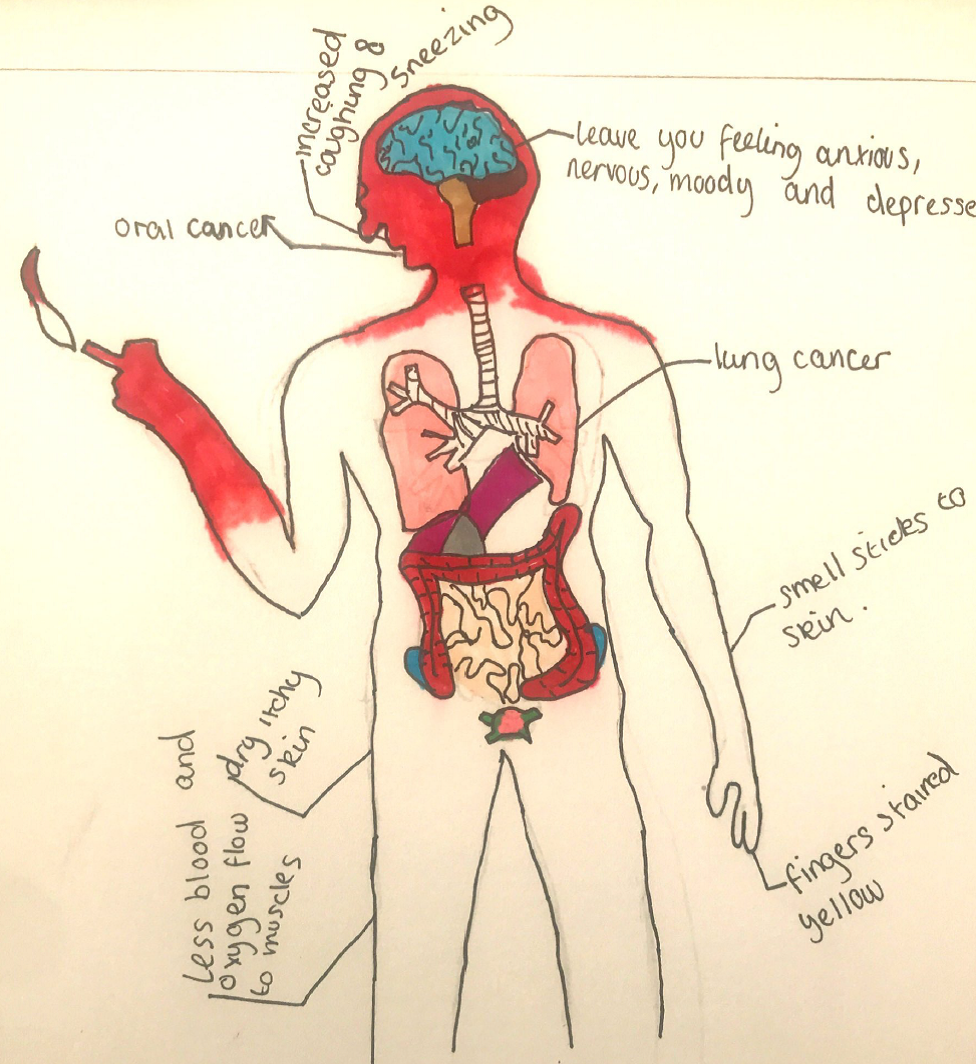 increased
coughing &
sneezing
leave you feeling anxious,
nervous, moody and depresse
oral cancer
lung cancer
smell sticks to
skin.
dry itchy
skin
Less blood and
oxygen flow
to muscles
fingers stained
yellow